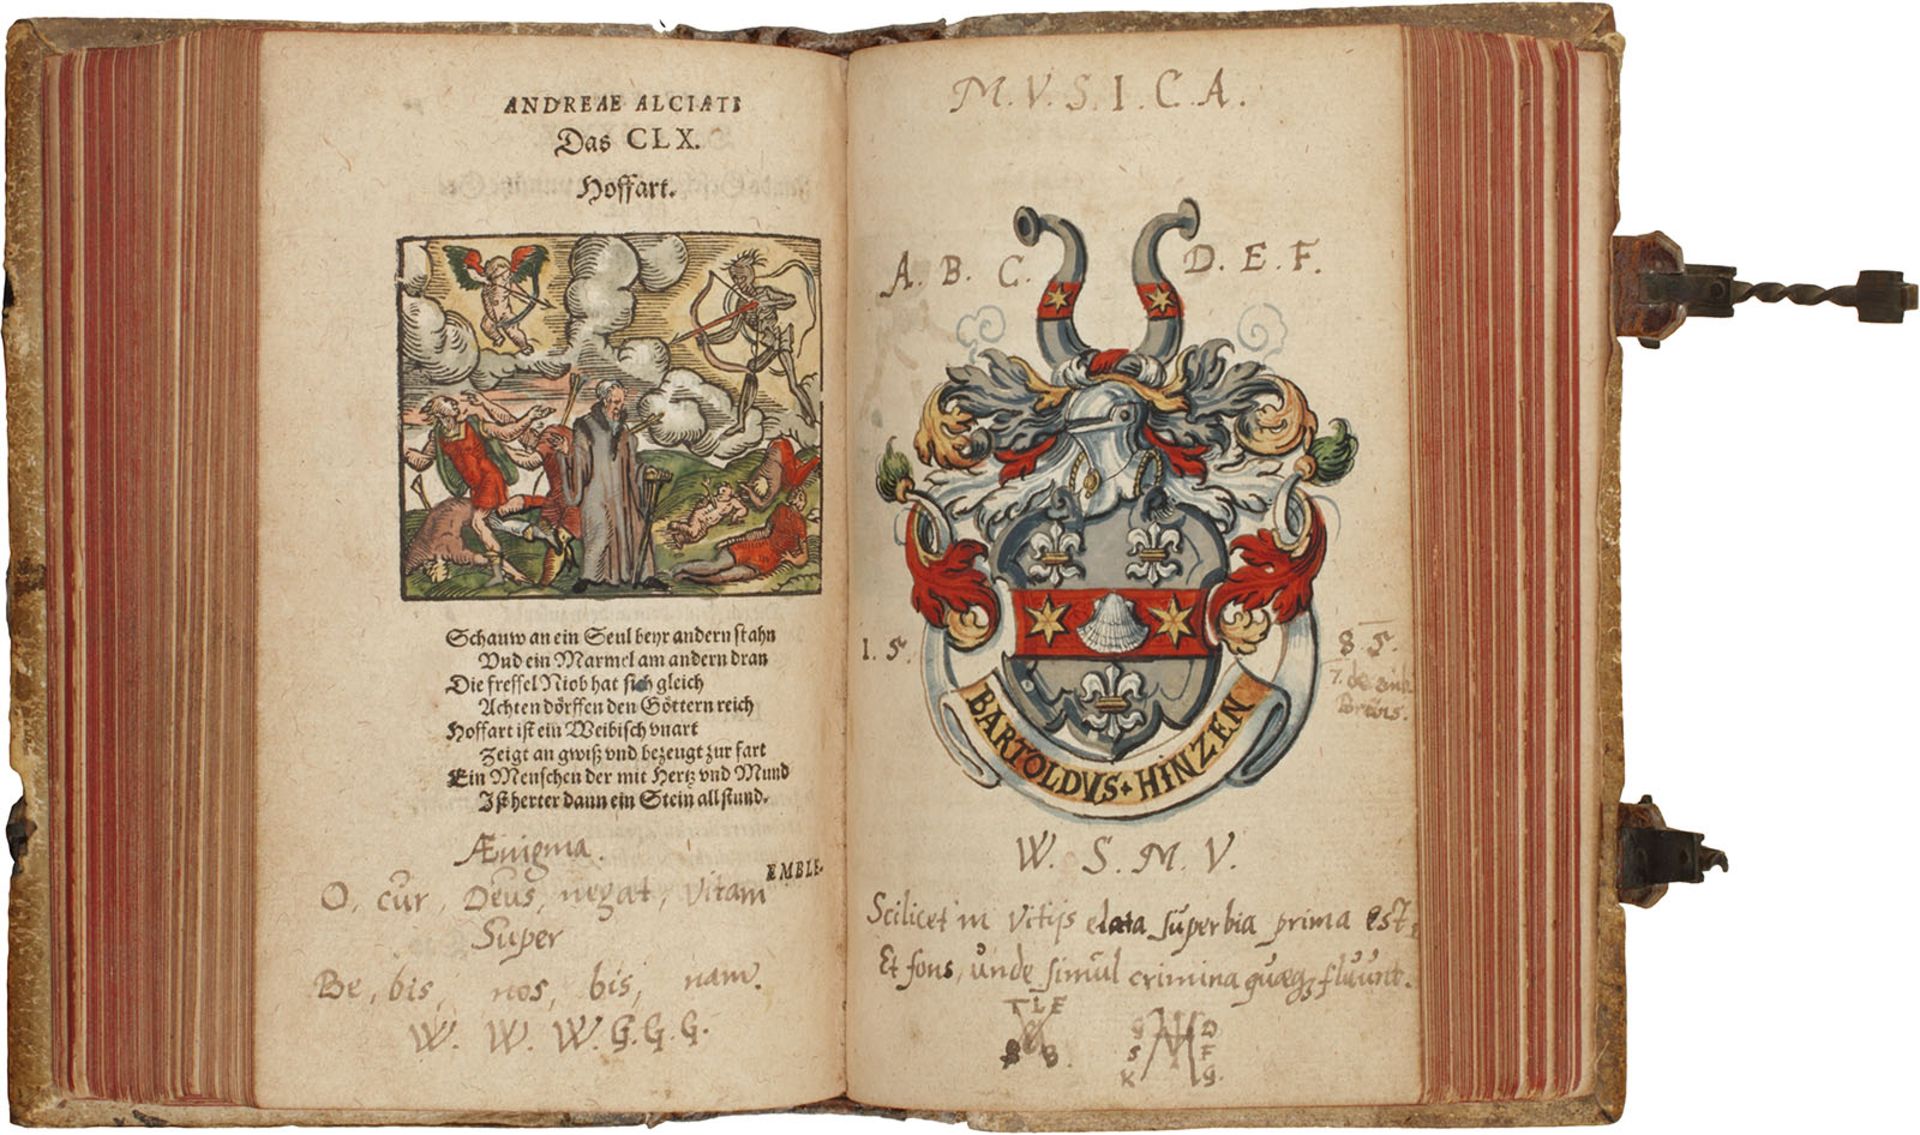 ANDREAE ALCIATI
Das CLX.
Hoffart.
Schauw an ein Seul beyr andern stahn
Vnd ein Marmel am andern dran
Die freffel Niob hat sich gleich
Achten dörffen den Göttern reich
Hoffart ist ein Weibisch vnart
Zeigt an gwiß vnd bezeugt zur fart
Ein Menschen der mit Hertz vnd Mund
Ist herter dann ein Stein all stund.
EMBLE-
Ænigma.
O, cur, Deus, negat, vitam
Super
Be, bis, nos, bis, nam.
W. W. W. G. G. G.
M. V. S. I. C. A.
A. B. C. D. E. F.
1. 5. 8. 5.
7. de
BARTOLDVS + HINZEN
W. S. M. V.
Scilicet in vitijs elata superbia prima est,
Et fons, unde simul crimina quæq3 fluunt.
T L E
S B.
S D
S F
K G.